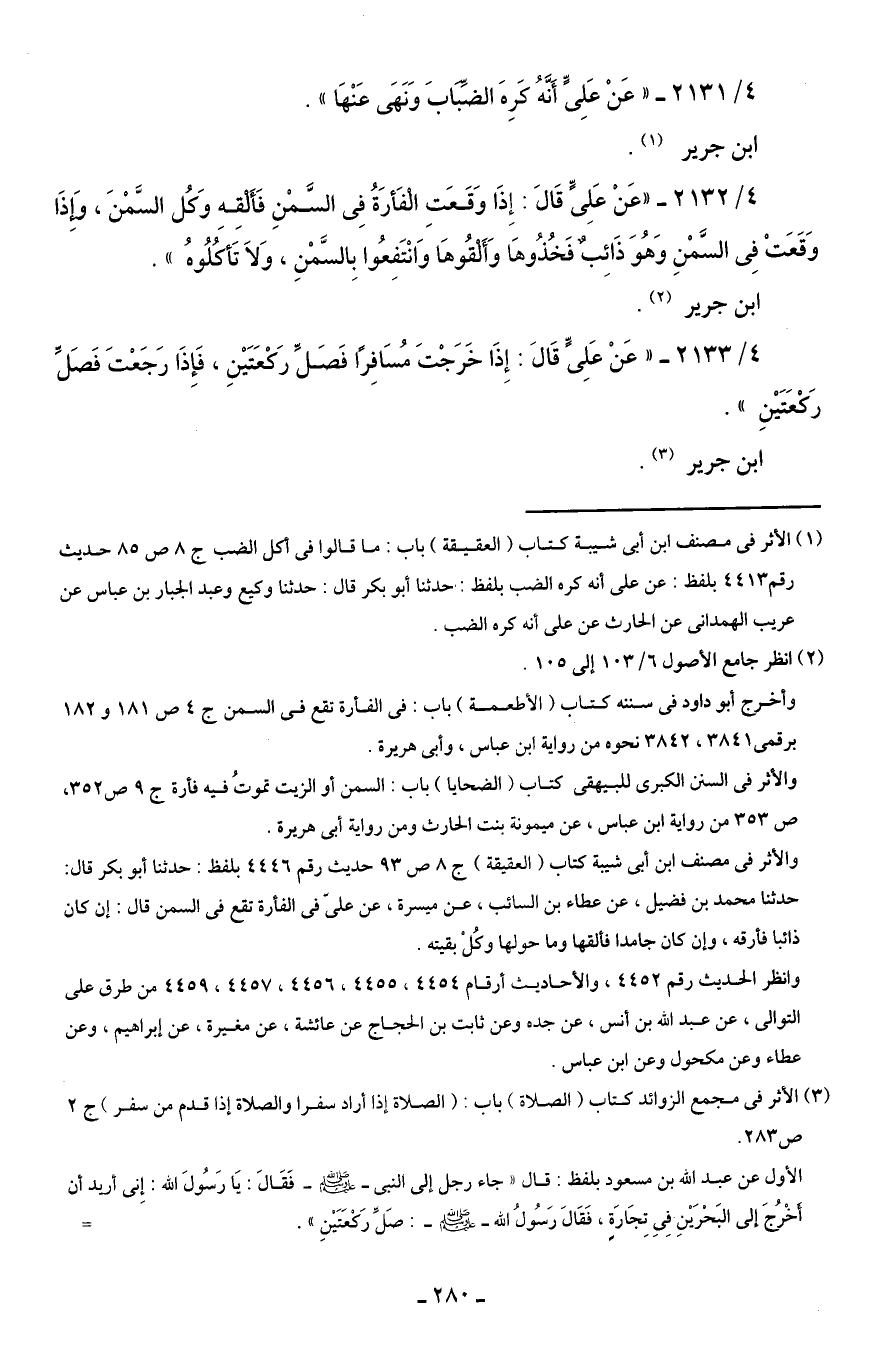 ٤/ ٢١٣١ ـ « عَنْ عَلِىٍّ أَنَّهُ كَرِهَ الضِّبَابَ وَنَهَى عَنْهَا » .
ابن جرير (١) .
٤/ ٢١٣٢ ـ «عَنْ عَلِىٍّ قَالَ : إِذَا وَقَعَتِ الْفَأرَةُ فِى السَّمْنِ فَأَلْقِهِ وَكُلِ السَّمْنَ ، وَإِذَا
وَقَعَتْ فِى السَّمْنِ وَهُوَ ذَائِبٌ فَخُذُوهَا وَأَلْقُوهَا وَانْتَفِعُوا بِالسَّمْنِ ، وَلاَ تَأكُلُوهُ » .
ابن جرير (٢) .
٤/ ٢١٣٣ ـ « عَنْ عَلِىٍّ قَالَ : إِذَا خَرَجْتَ مُسَافِرًا فَصَلِّ رَكْعَتَيْنِ ، فَإِذَا رَجَعْتَ فَصَلِّ
رَكْعَتَيْنِ » .
ابن جرير (٣) .
(١) الأثر فى مصنف ابن أبى شيبة كتاب ( العقيقة ) باب : ما قالوا فى أكل الضب ج ٨ ص ٨٥ حديث
رقم٤٤١٣ بلفظ : عن على أنه كره الضب بلفظ : حدثنا أبو بكر قال : حدثنا وكيع وعبد الجبار بن عباس عن
عريب الهمدانى عن الحارث عن على أنه كره الضب .
(٢) انظر جامع الأصول ٦/ ١٠٣ إلى ١٠٥ .
وأخرج أبو داود فى سننه كتاب ( الأطعمة ) باب : فى الفأرة تقع فى السمن ج ٤ ص ١٨١ و ١٨٢
برقمى٣٨٤١ ، ٣٨٤٢ نحوه من رواية ابن عباس ، وأبى هريرة .
والأثر فى السنن الكبرى للبيهقى كتاب ( الضحايا ) باب : السمن أو الزيت تموتُ فيه فأرة ج ٩ ص٣٥٢،
ص ٣٥٣ من رواية ابن عباس ، عن ميمونة بنت الحارث ومن رواية أبى هريرة .
والأثر فى مصنف ابن أبى شيبة كتاب ( العقيقة ) ج ٨ ص ٩٣ حديث رقم ٤٤٤٦ بلفظ : حدثنا أبو بكر قال:
حدثنا محمد بن فضيل ، عن عطاء بن السائب ، عن ميسرة ، عن علىّ فى الفأرة تقع فى السمن قال : إن كان
ذائبا فأرقه ، وإن كان جامدا فألقها وما حولها وكُلْ بقيته .
وانظر الحديث رقم ٤٤٥٢ ، والأحاديث أرقام ٤٤٥٤ ، ٤٤٥٥ ، ٤٤٥٦ ، ٤٤٥٧ ، ٤٤٥٩ من طرق على
التوالى ، عن عبد الله بن أنس ، عن جده وعن ثابت بن الحجاج عن عائشة ، عن مغيرة ، عن إبراهيم ، وعن
عطاء وعن مكحول وعن ابن عباس .
(٣) الأثر فى مجمع الزوائد كتاب ( الصلاة ) باب : ( الصلاة إذا أراد سفرا والصلاة إذا قدم من سفر ) ج ٢
ص٢٨٣.
الأول عن عبد الله بن مسعود بلفظ : قال « جاء رجل إلى النبى ـ ﷺ ـ فَقَالَ : يَا رَسُولَ الله : إنى أريد أن
أَخْرُجَ إلى البَحْرَيْنِ فِى تِجَارَةٍ ، فَقَالَ رَسُولُ الله ـ ﷺ ـ : صَلِّ رَكْعَتَيْنِ » . =
ـ ٢٨٠ ـ